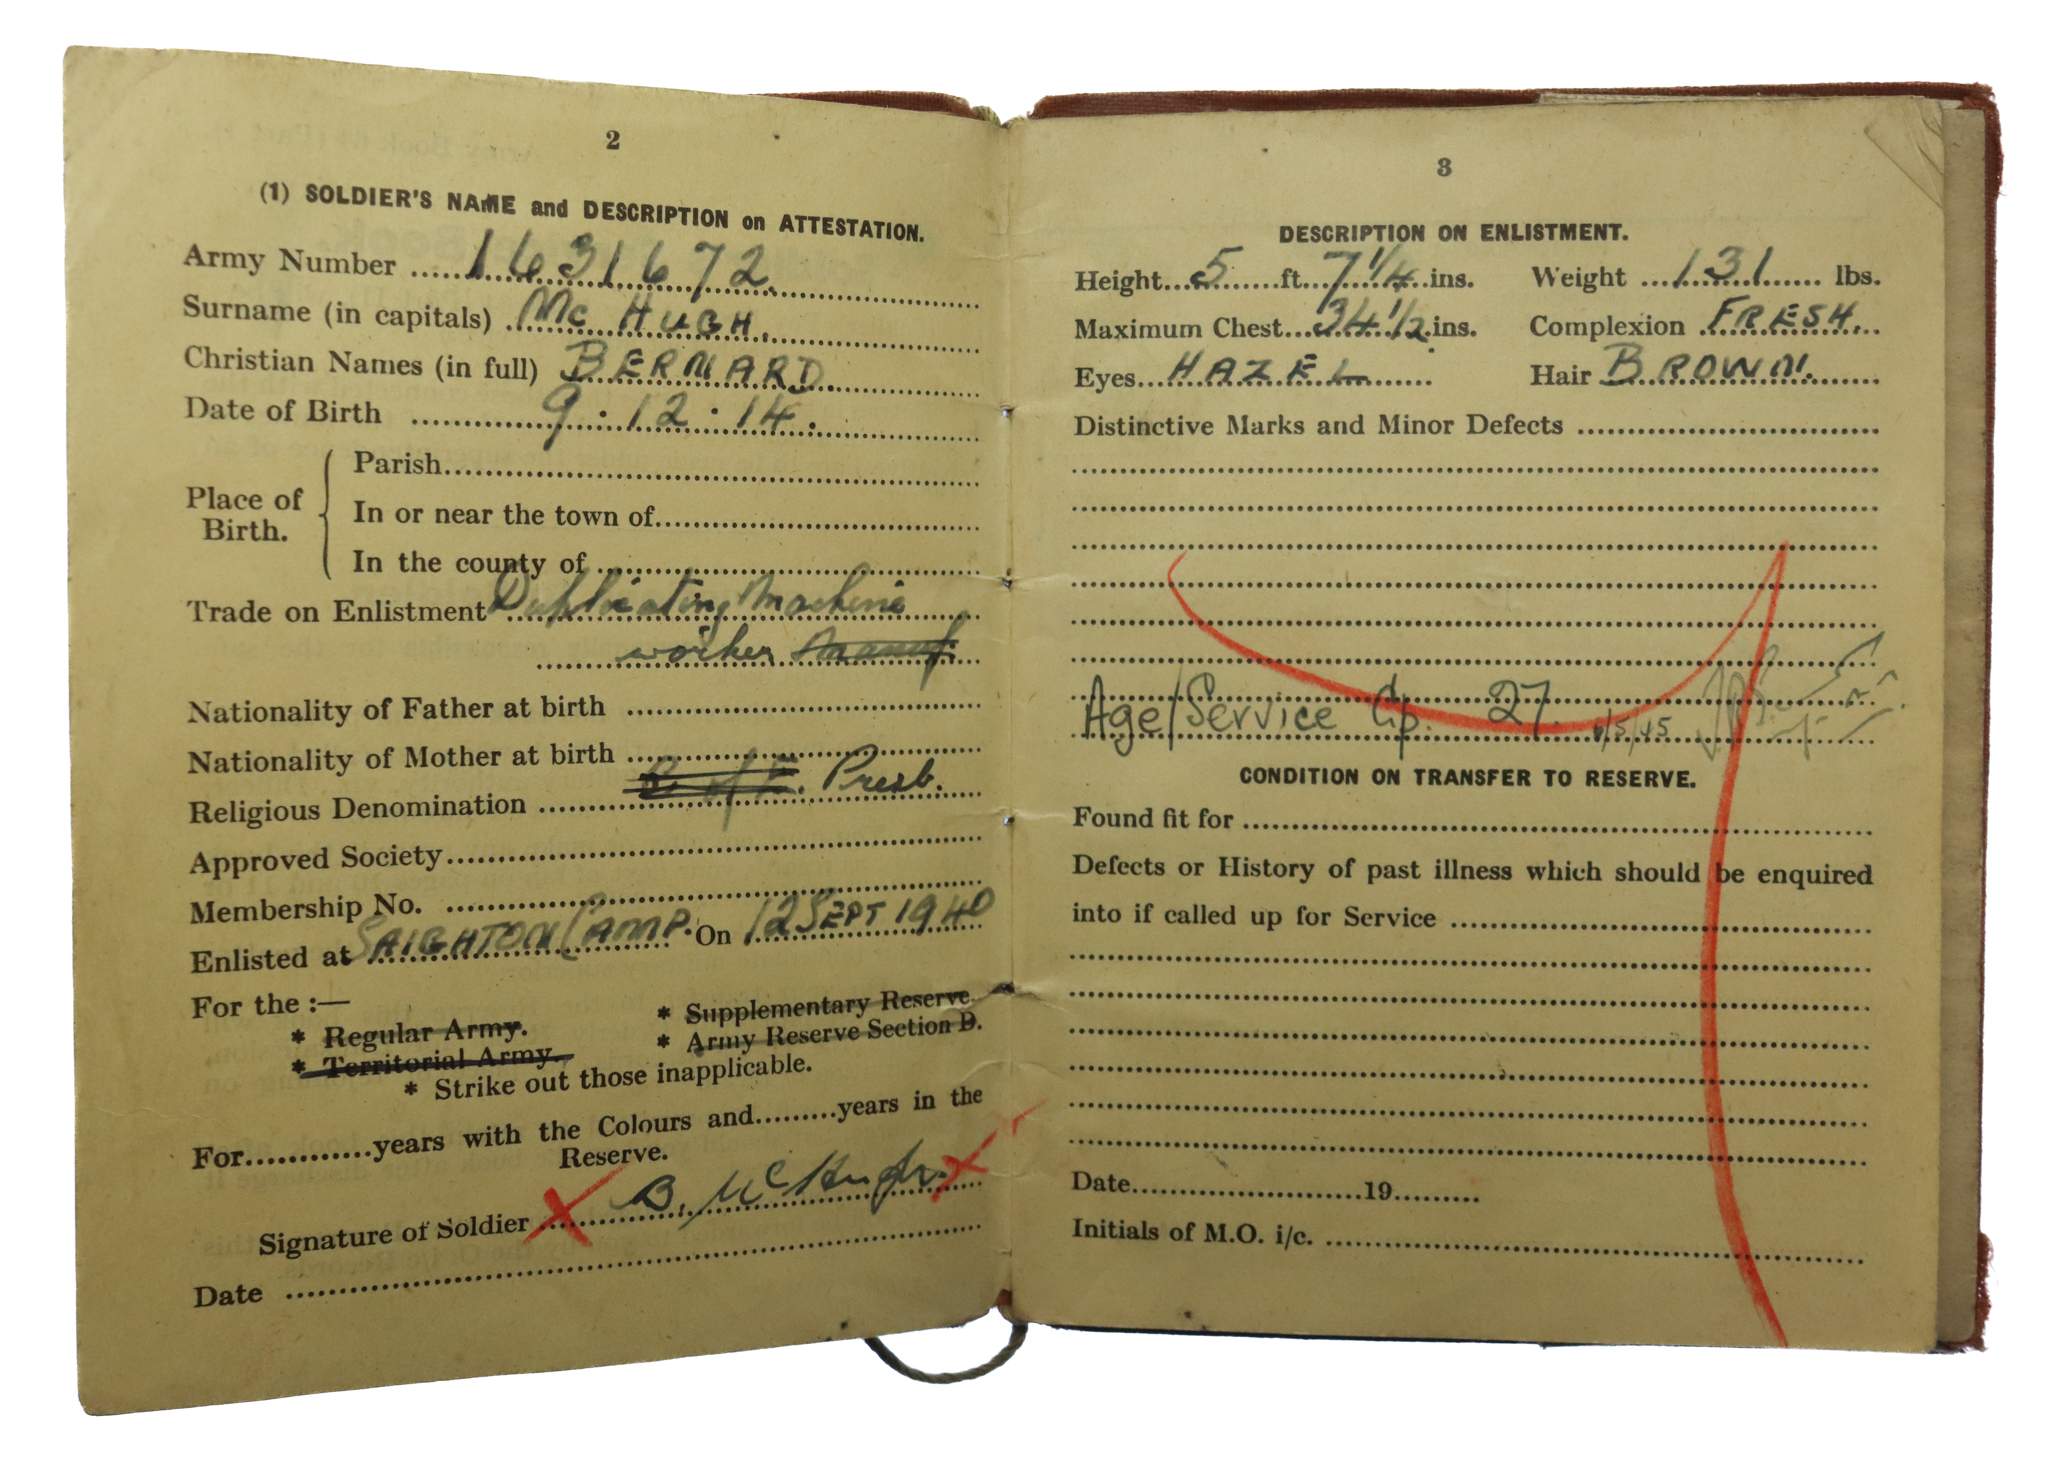 2
(1) SOLDIER'S NAME and DESCRIPTION on ATTESTATION.
Army Number ..... 1631672.
Surname (in capitals) Mc HUGH.
Christian Names (in full) BERNARD.
Date of Birth ..... 9.12.14.
Place of Birth.
Parish.....
In or near the town of.....
In the county of .....
Trade on Enlistment Duplicating Machine
worker manuf.
Nationality of Father at birth .....
Nationality of Mother at birth .....
Religious Denomination ..... C. of E. Presb.
Approved Society.....
Membership No. .....
Enlisted at SAIGHTON CAMP. On 12 SEPT 1940
For the :—
* Regular Army. * Supplementary Reserve.
* Territorial Army. * Army Reserve Section D.
* Strike out those inapplicable.
For.....years with the Colours and.....years in the
Reserve.
Signature of Soldier X B. McHugh. X
Date .....
3
DESCRIPTION ON ENLISTMENT.
Height...5...ft...7 1/4...ins. Weight ...131... lbs.
Maximum Chest...34 1/2 ins. Complexion FRESH.
Eyes...HAZEL..... Hair BROWN.
Distinctive Marks and Minor Defects .....
Age/Service Gp. 27. /5/45
CONDITION ON TRANSFER TO RESERVE.
Found fit for .....
Defects or History of past illness which should be enquired
into if called up for Service .....
Date.....19.....
Initials of M.O. i/c. .....